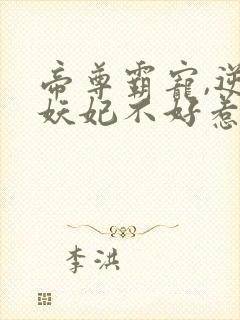 帝尊霸宠,逆
妖妃不好惹
李洪